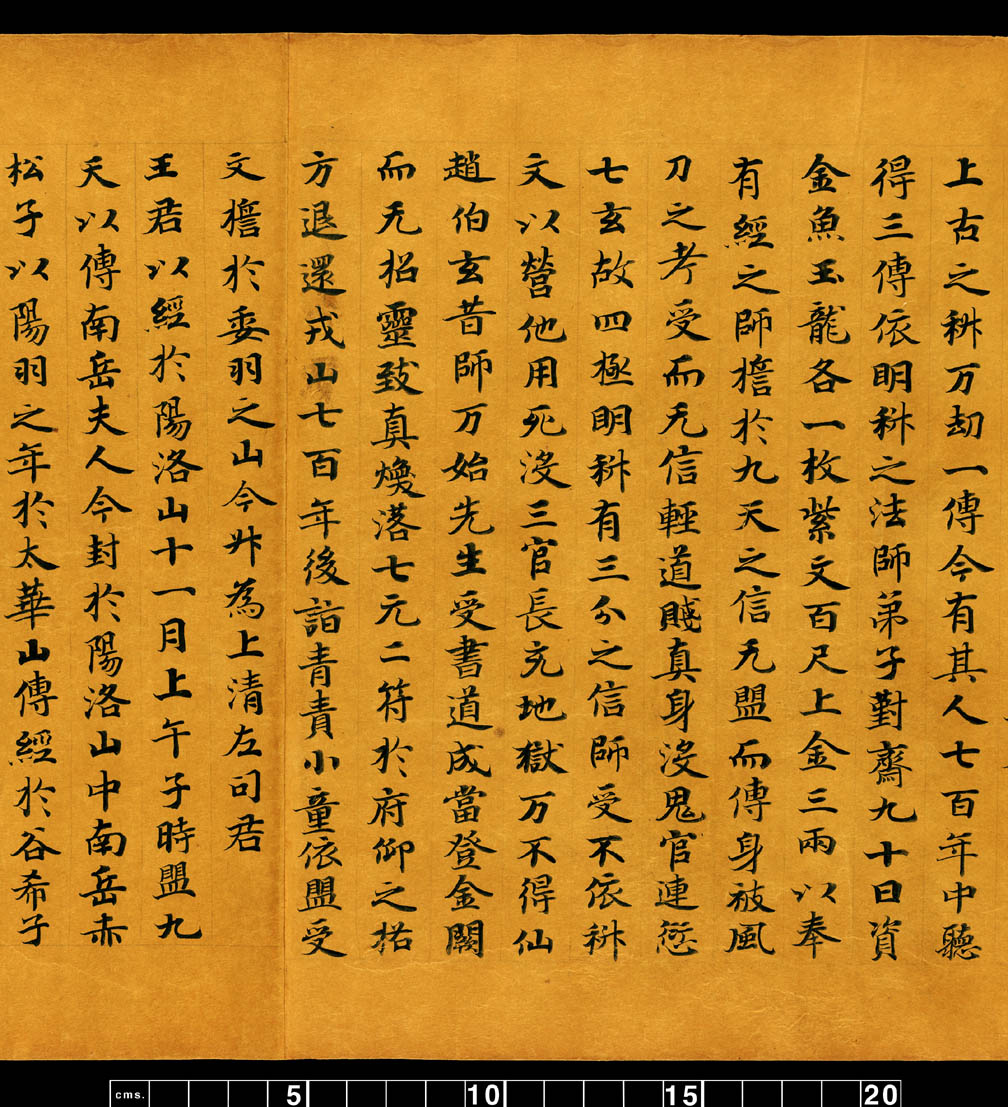 上古之科万劫一傳今有其人七百年中聽
得三傳依明科之法師弟子對齋九十日資
金魚玉龍各一枚紫文百尺上金三兩以奉
有經之師檐於九天之信无盟而傳身被風
刀之考受而无信輕道賤真身没鬼官連愆
七玄故四極明科有三分之信師受不依科
文以營他用死没三官長充地獄万不得仙
趙伯玄昔師万始先生受書道成當登金闕
而无招靈致真煥落七元二符於府仰之格
方退還戎山七百年後詣青責小童依盟受
文檐於委羽之山今升為上清左司君
王君以經於陽洛山十一月上午子時盟九
天以傳南岳夫人今封於陽洛山中南岳赤
松子以陽羽之年於太華山傳經於谷希子
cms. 5 10 15 20